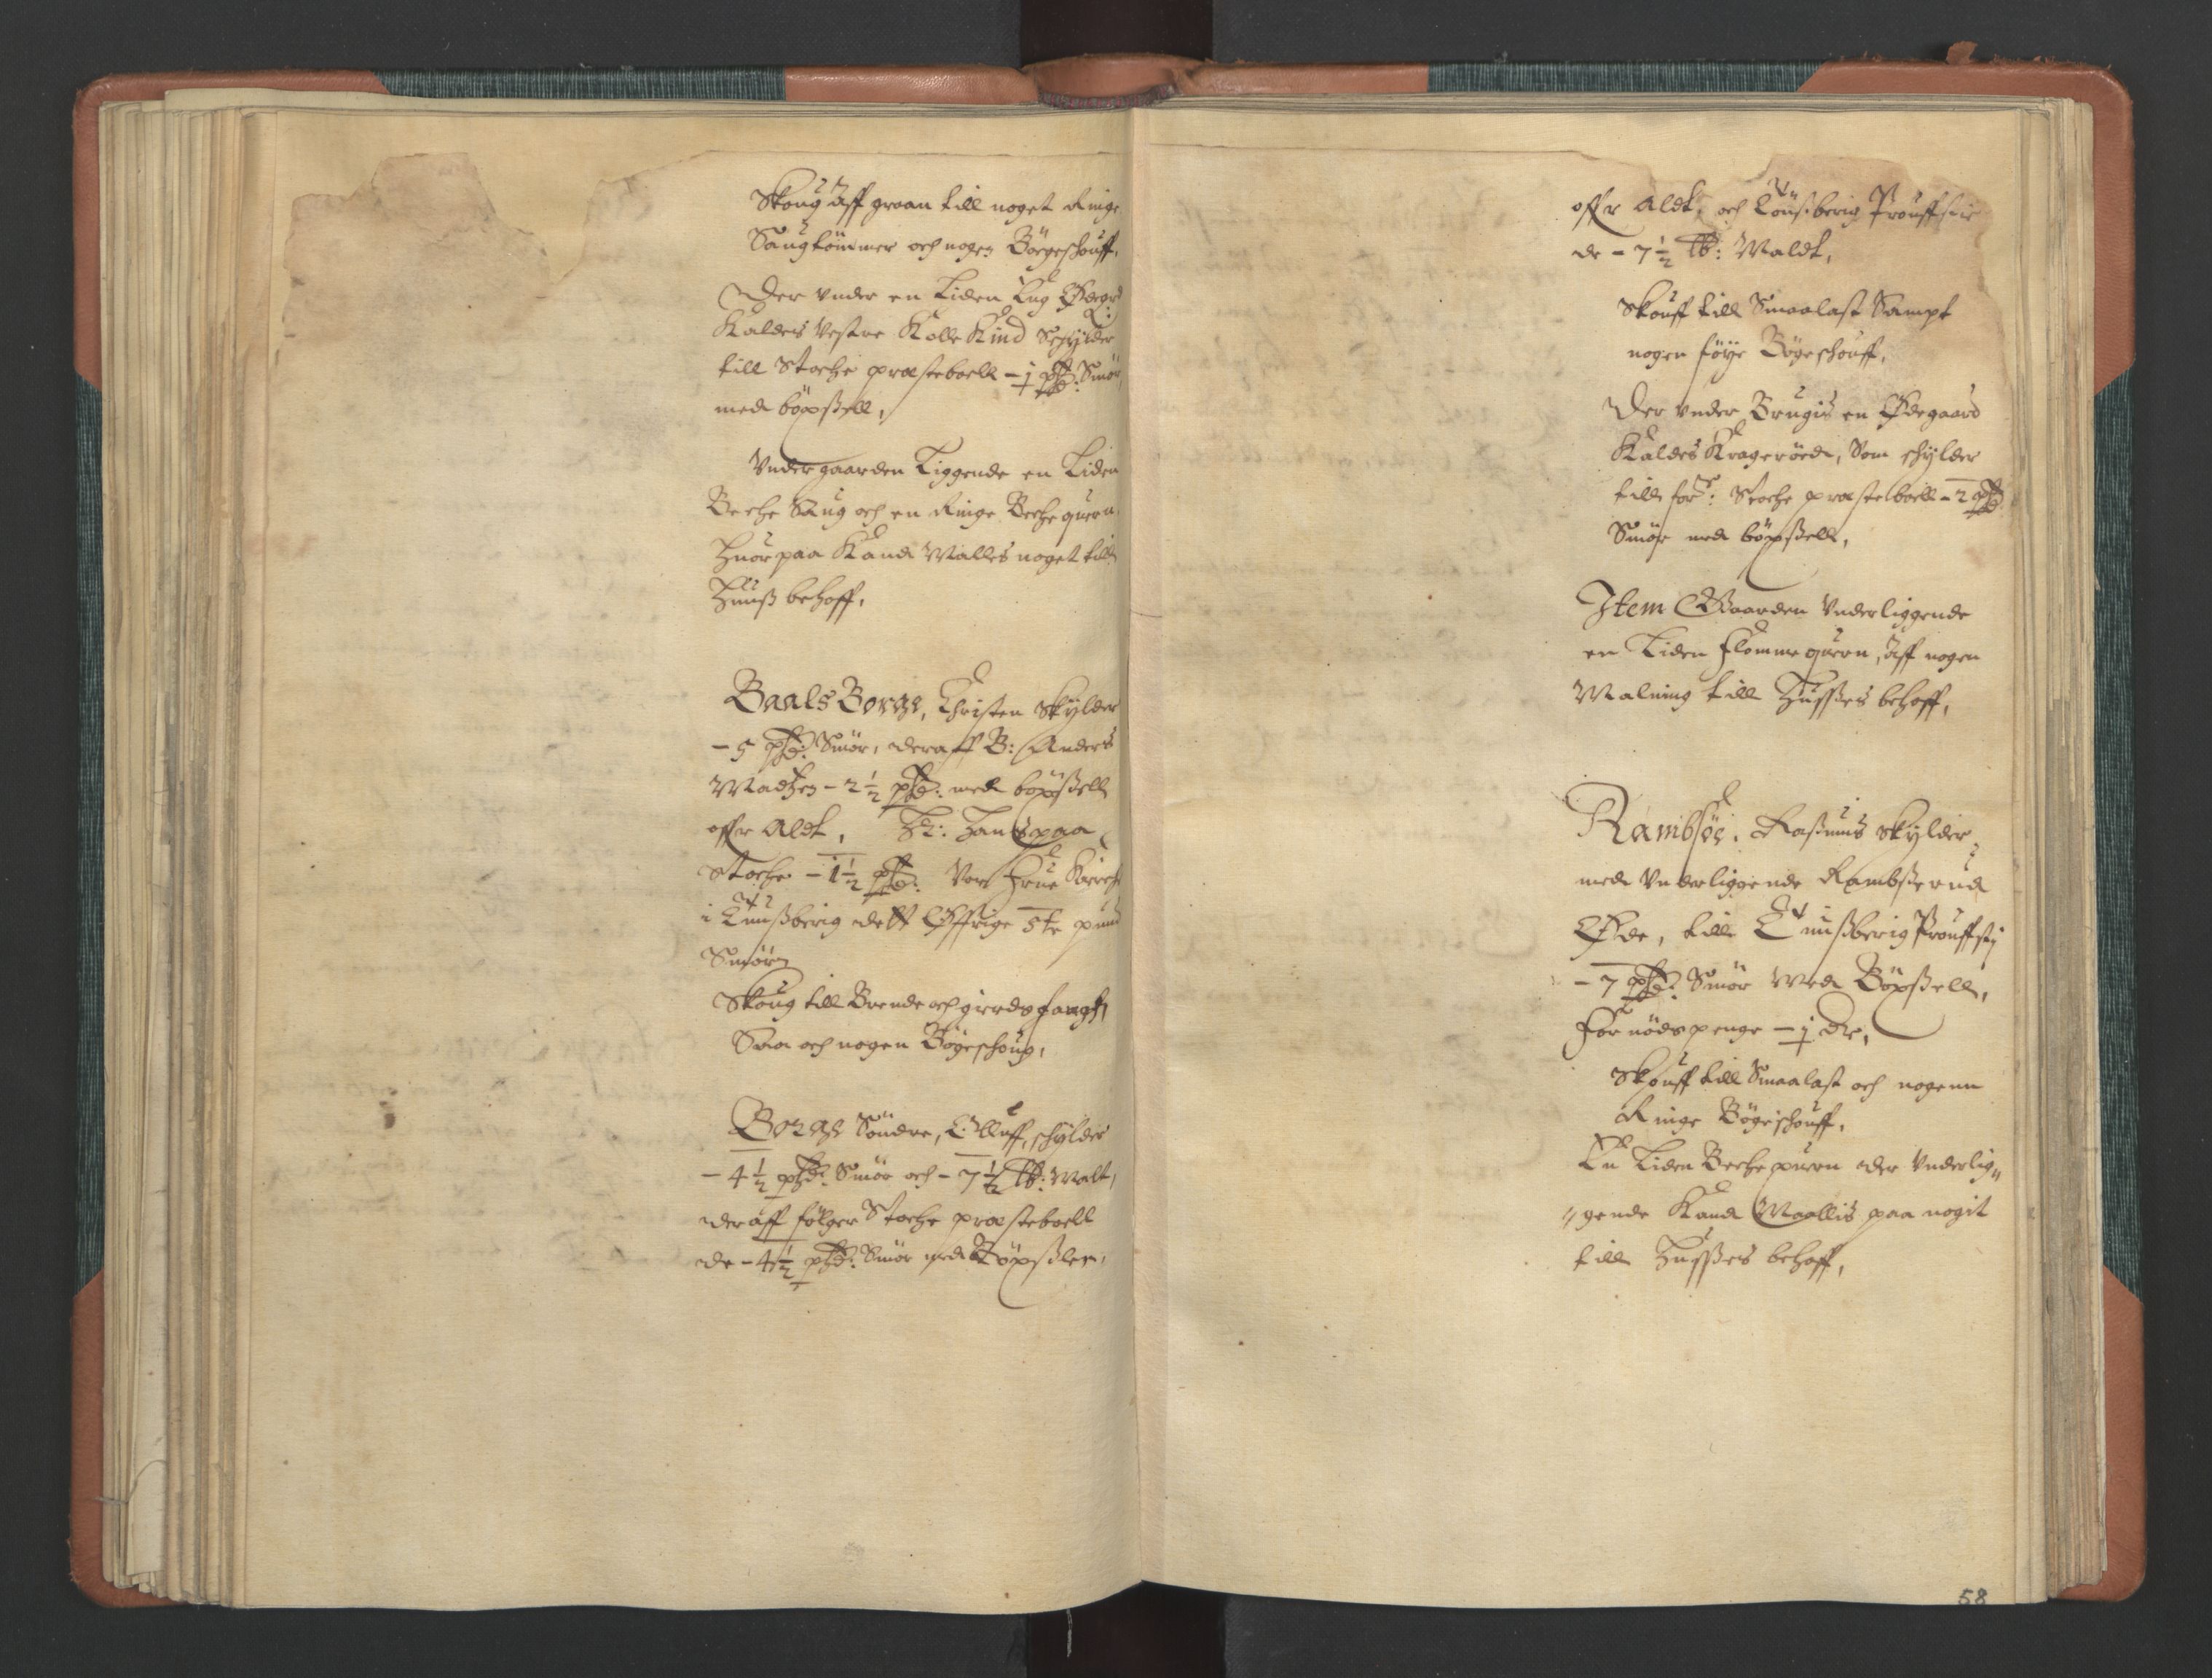 Skoug Aff graan till noget Ringe
Saugtömmer och nogen Bögeschouff,
Der vnder en Liden Lug Ødegrd
Kaldes Vestre Kolle Kind Schylder
till Stoche præsteboell – 1 pd: Smör
med böxsell,
Vnder gaarden Liggende en Liden
Beche Saug och en Ringe Bechequern,
Huor paa Kand Malles noget till
Huuss behoff,
Baals Borge, Christen Skylder
– 5 pd: Smör, deraff B: Anders
Madtzen – 2 1/2 pd: med böxsell
offr Aldt, Hr: Hans paa
Stoche – 1 1/2 pd: Vor Frue Kirche
i Tunssberig dett Øffrige 5te pund
Smör
Skoug till Brende och gierdsfangst,
Saa och nogen Bögeschoug,
Borge Söndre, Olluff, schylder
– 4 1/2 pd: Smör och – 7 1/2 lb: Malt,
der aff fölger Stoche præsteboell
de – 4 1/2 pd: Smör med Böxslen,
offr Aldt, och Tönssberig Prouffstie
de – 7 1/2 lb: Maldt,
Skouff till Smaalast Sampt
nogen föye Bögeschouff,
Der vnder Brugis en Ødegaard
Kaldes Krageröed, Som schylder
till fors: Stoche præsteboell – 2 pd
Smör med böxsell,
Item Gaarden Vnderliggende
en Liden Flomme quern, Aff nogen
Malning till Hussses behoff,
Rambsöe, Rasmus Skylder
med Vnderliggende Rambsserud
Øde, till Tunssberig Prouffstij
– 7 pd: Smör Med Böxsell,
Fornödspenge – 1 dr,
Skouff till Smaalast och nogenn
Ringe Bögeschouff,
En Liden Beche quern der Vnderlig„
„gende Kand Maallis paa nogit
till Hussses behoff,
58